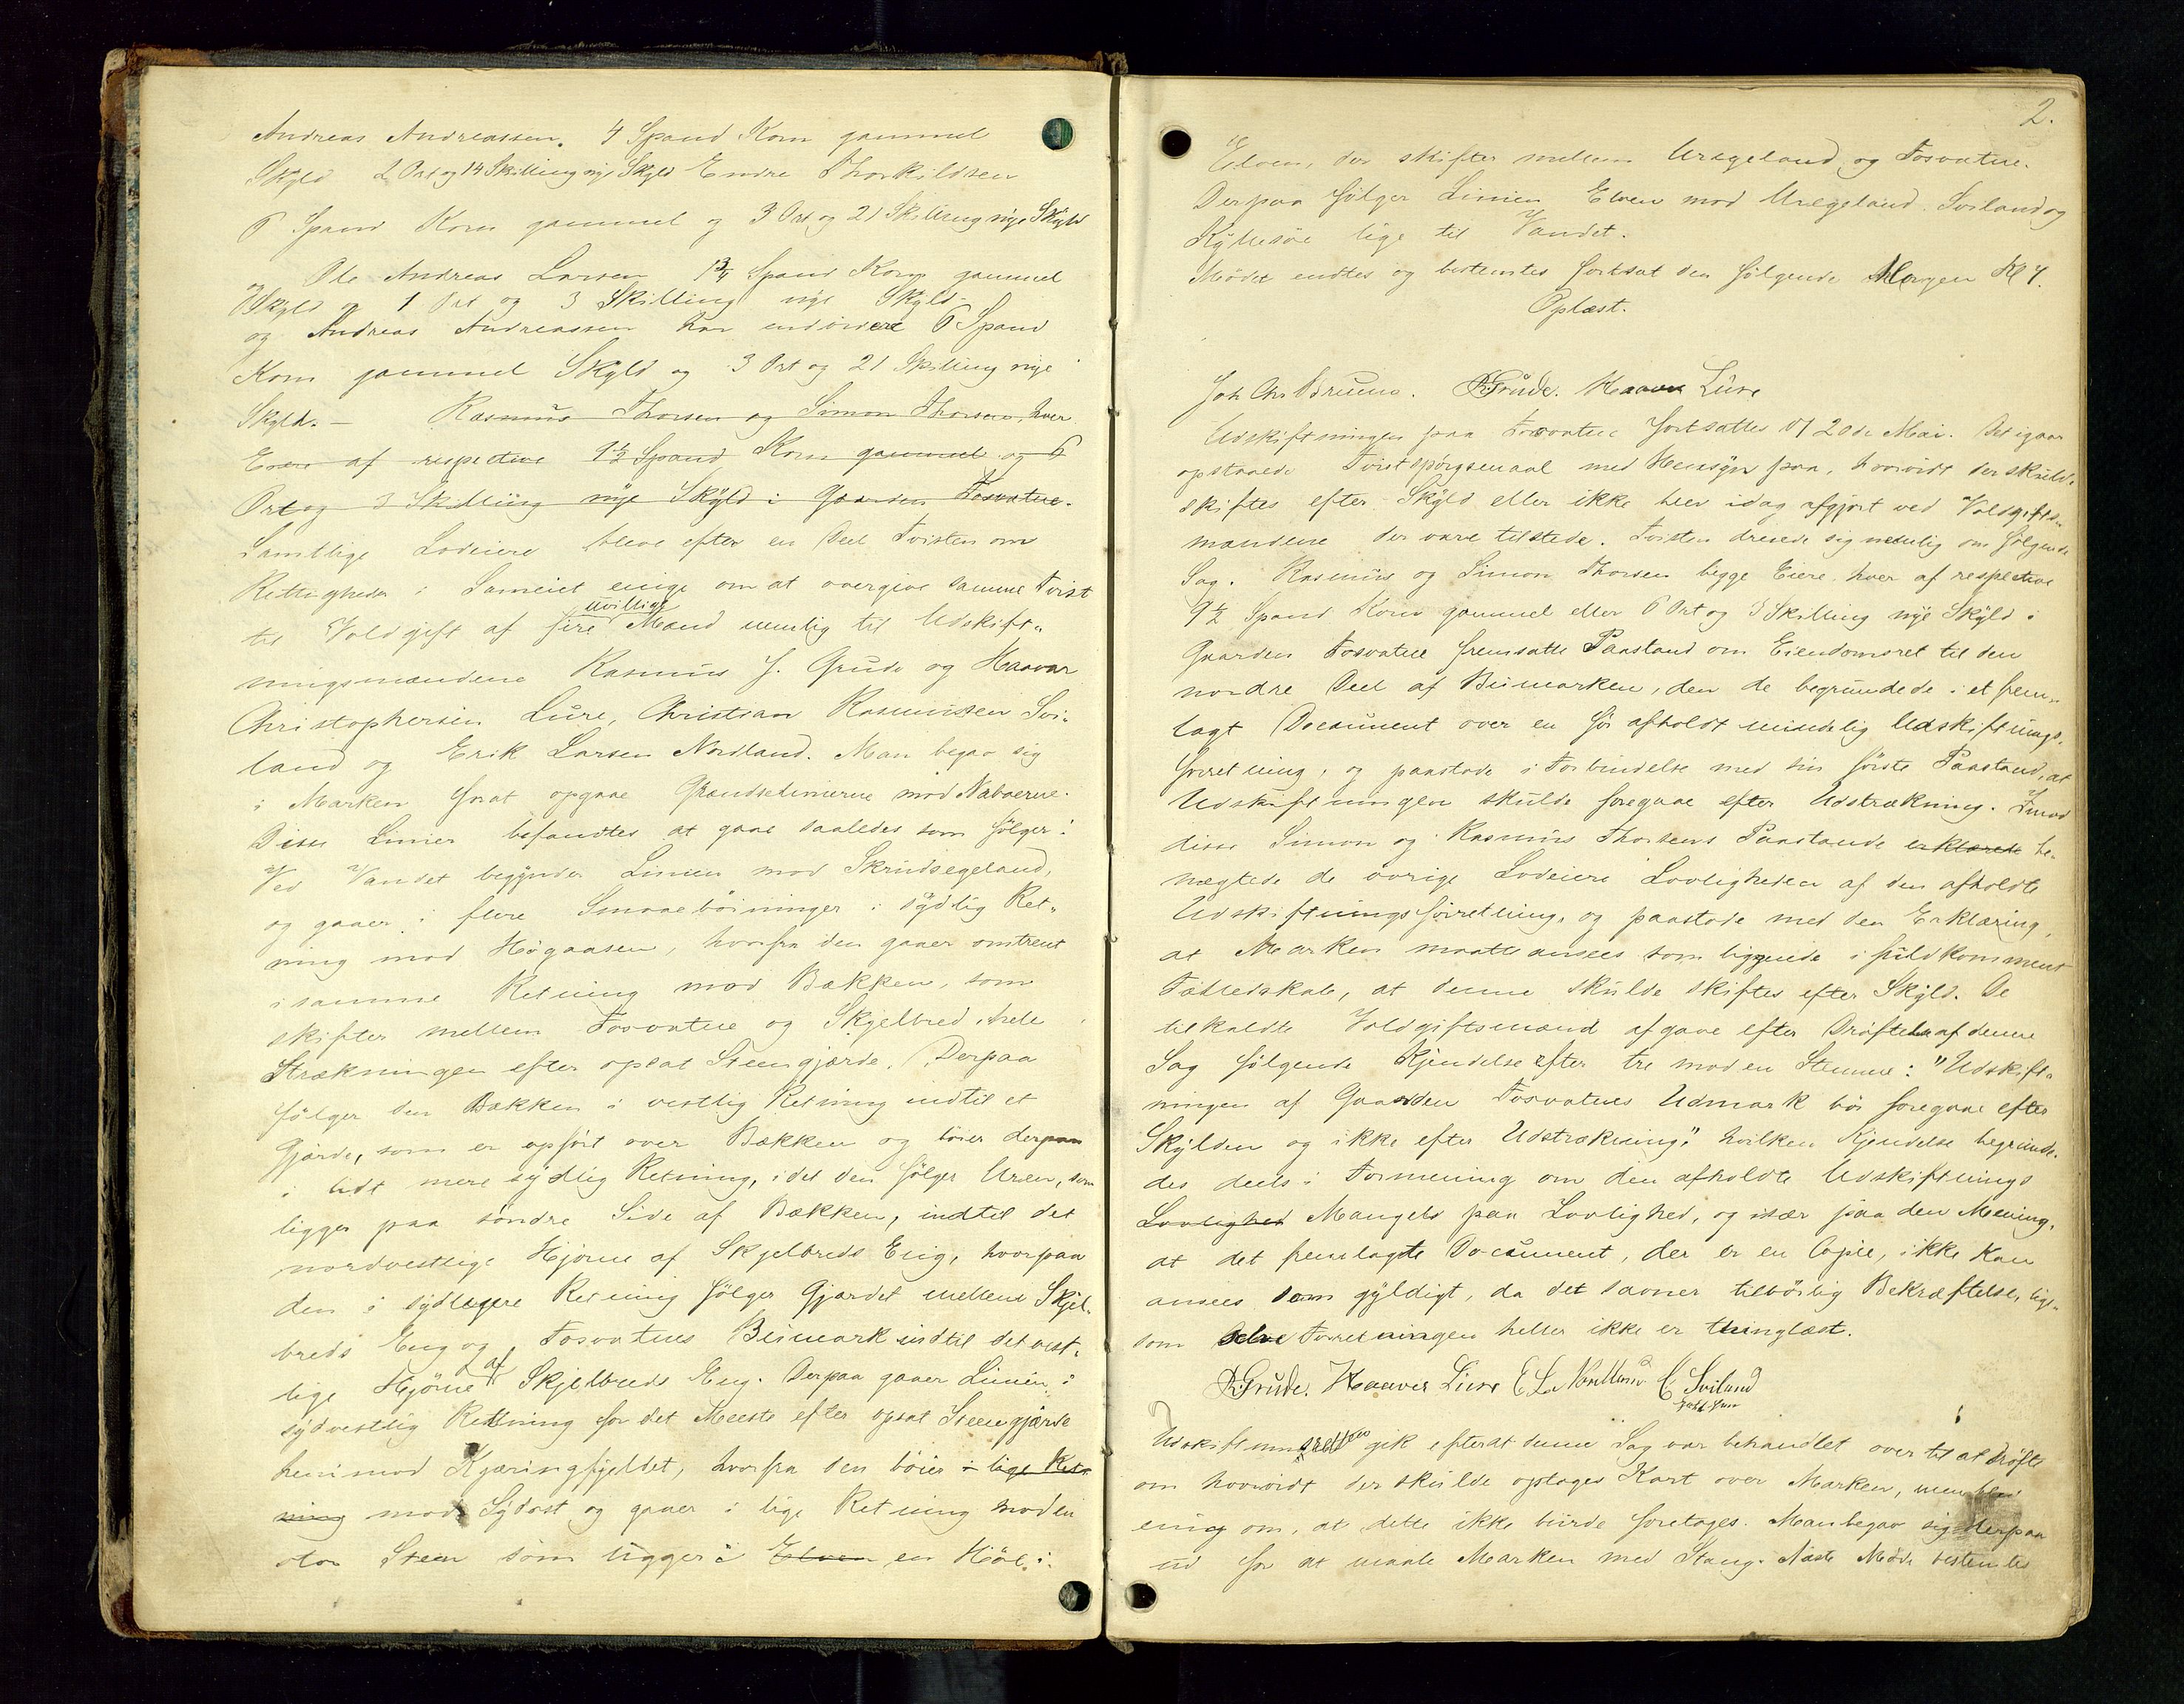 Andreas Andreassen. 4 Spand Korn gammel
Skyld 2 Ort og 14 Skilling nye Skyld Endre Thorkildsen
6 Spand Korn gammel og 3 Ort og 21 Skilling nye Skyld
Ole Andreas Larsen 1 3/4 Spand Korn gammel
Skyld og 1 Ort og 3 Skilling nye Skyld-
og Andreas Andreassen har endvidere 6 Spand
Korn gammel Skyld og 3 Ort og 21 Skilling nye
Skyld. - Rasmus Thorsen og Simon Thorsen, hver
Eiere af respective 9½ Spand Korn gammel og 6
Ort og 3 Skilling nye Skyld i Gaarden Fosvatne.
Samtlige Lodeiere bleve efter en Deel Tvisten om
Rettigheder i Sameiet enige om at overgive samme Tvist
til Voldgift af fire uvillige Mænd nemlig til Udskift„
ningsmændene Rasmus J. Grude og Haavar
Christophersen Lure, Christian Rasmussen Svi„
land og Erik Larsen Nordland. Man begav sig
i Marken forat opgaae Grændselinierne mod Naboerne.
Disse Linier befandtes at gaae saaledes som følger:
Ved Vandet begynder Linien mod Skrudsegeland,
og gaaer i flere Smaaebøininger i sydlig Ret„
ning mod Høgaasen, hvorfra den gaaer omtrent
i samme Retning mod Bækken, som
skifter mellem Fosvatne og Skjelbred, hele
Strækningen efter opsat Steengjærde. Derpaa
følger den Bækken i vestlig Retning indtil et
Gjærde, som er opført over Bækken og bøier derpaa
i lidt mere sydlig Retning, idet den følger Uren, som
ligger paa søndre Side af Bækken, indtil det
nordvestlige Hjørne af Skjelbreds Eng, hvorpaa
den i sydligere Retning følger Gjærdet mellem Skjel„
breds Eng og Fosvatnes Beimark indtil det vest„
lige Hjørne af Skjelbreds Eng. Derpaa gaaer Linien i
sydvestlig Retning for det Meeste efter opsat Steengjærde
henimod Kjæringfjeldet, hvorfra den bøier i lige Ret„
ning mod Sydost og gaaer i lige Retning mod en
stor Steen som ligger i Elven en Høl i
2.
Elven, der skifter mellem Uregeland og Fosvatne.
Derpaa følger Linien Elven mod Uregeland Sviland og
Kyllesøe lige til Vandet.
Mødet endtes og bestemtes fortsat den følgende Morgen Kl 7.
Oplæst.
Joh Chr Bruun. R Grude. Haavar Lure
Udskiftningen paa Fosvatne fortsattes 17 20de Mai. Det igaar
opstaaede Tvistspørgsmaal med Hensyn paa, hvorvidt der skulde
skiftes efter Skyld eller ikke blev idag afgjort ved Voldgifts„
mændene der vare tilstede. Tvisten dreiede sig nemlig om følgende
Sag. Rasmus og Simon Thorsen begge Eiere hver af respective
9½ Spand Korn gammel eller 6 Ort og 3 Skilling nye Skyld i
Gaarden Fosvatne fremsatte Paastand om Eiendomsret til den
nordre Deel af Beimarken, den de begrundede i et frem„
lagt Document over en før afholdt mindelig Udskiftnings„
forretning, og paastode i Forbindelse med sin første Paastand, at
Udskiftningen skulde foregaae efter Udstrækning. Imod
disse Simon og Rasmus Thorsens Paastande erklærede be„
nægtede de øvrige Lodeiere Lovligheden af den afholdte
Udskiftningsforretning, og paastode med den Erklæring,
at Marken maatte ansees som liggende i fuldkomment
Fælledskab, at denne skulde skiftes efter Skyld. De
tilkaldte Voldgiftsmænd afgave efter Drøftelse af denne
Sag følgende Kjendelse efter tre mod en Stemme: "Udskift„
ningen af Gaarden Fosvatnes Udmark bør foregaae efter
Skylden og ikke efter Udstrækning." hvilken Kjendelse begrunde„
des deels i Formening om den afholdte Udskiftnings
Lovlighed Mangels paa Lovlighed, og især paa den Mening,
at det fremlagte Document, der er en Copie, ikke kan
ansees som gyldigt, da det savner tilbørlig Bekræftelse, lige„
som selve Forretningen heller ikke er thinglæst.
R Grude. Haaver Lure E. L. Nordland C Sviland
Udskiftningsretten gik efterat denne Sag var behandlet over til at drøfte
om hvorvidt der skulde optages Kart over Marken, men blev
enig om, at dette ikke burde foretages. Man begav sig derpaa
ud for at maale Marken med Stang. Næste Møde bestemtes